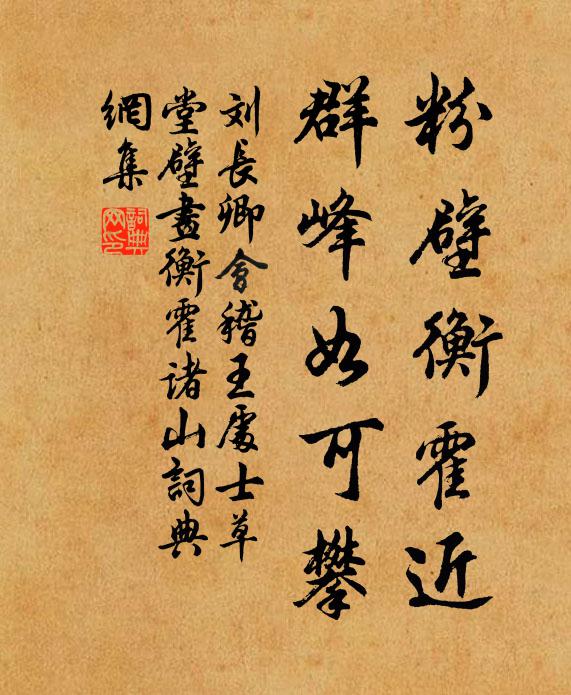 粉壁衡霍近
群峰如可攀
刘長卿會稽王處士草
堂壁畫衡霍诸山詞典
網集
詞典
网印